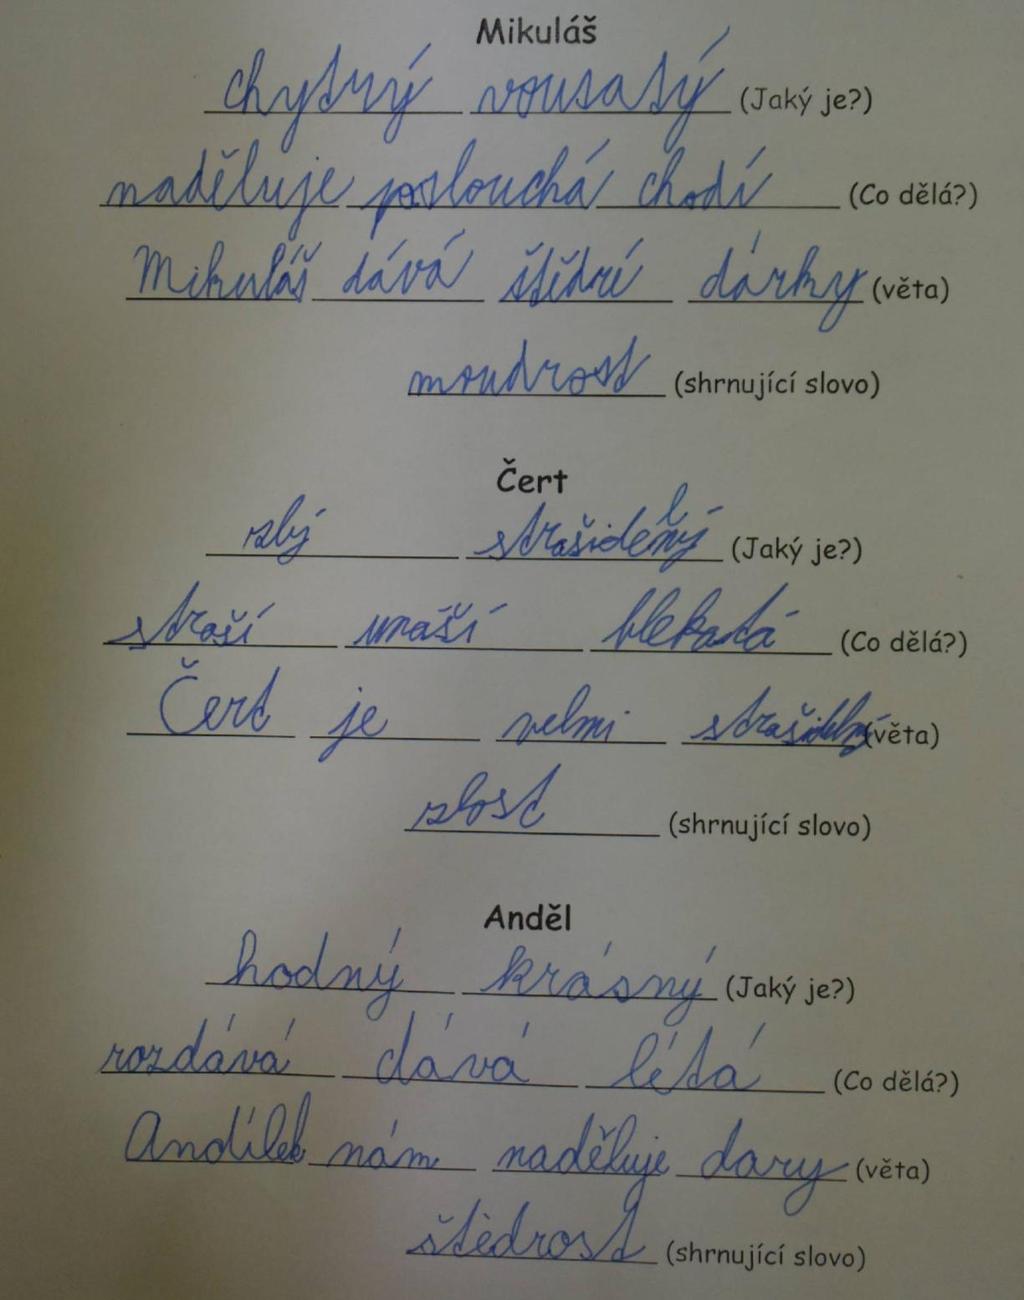 Mikuláš
chytrý vousatý (Jaký je?)
naděluje poslouchá chodí (Co dělá?)
Mikuláš dává štědrí dárky (věta)
moudrost (shrnující slovo)
Čert
zlý strašidelný (Jaký je?)
straší unáší blekatá (Co dělá?)
Čert je velmi strašidelný (věta)
zlost (shrnující slovo)
Anděl
hodný krásný (Jaký je?)
rozdává dává létá (Co dělá?)
Andílek nám naděluje dary (věta)
štědrost (shrnující slovo)